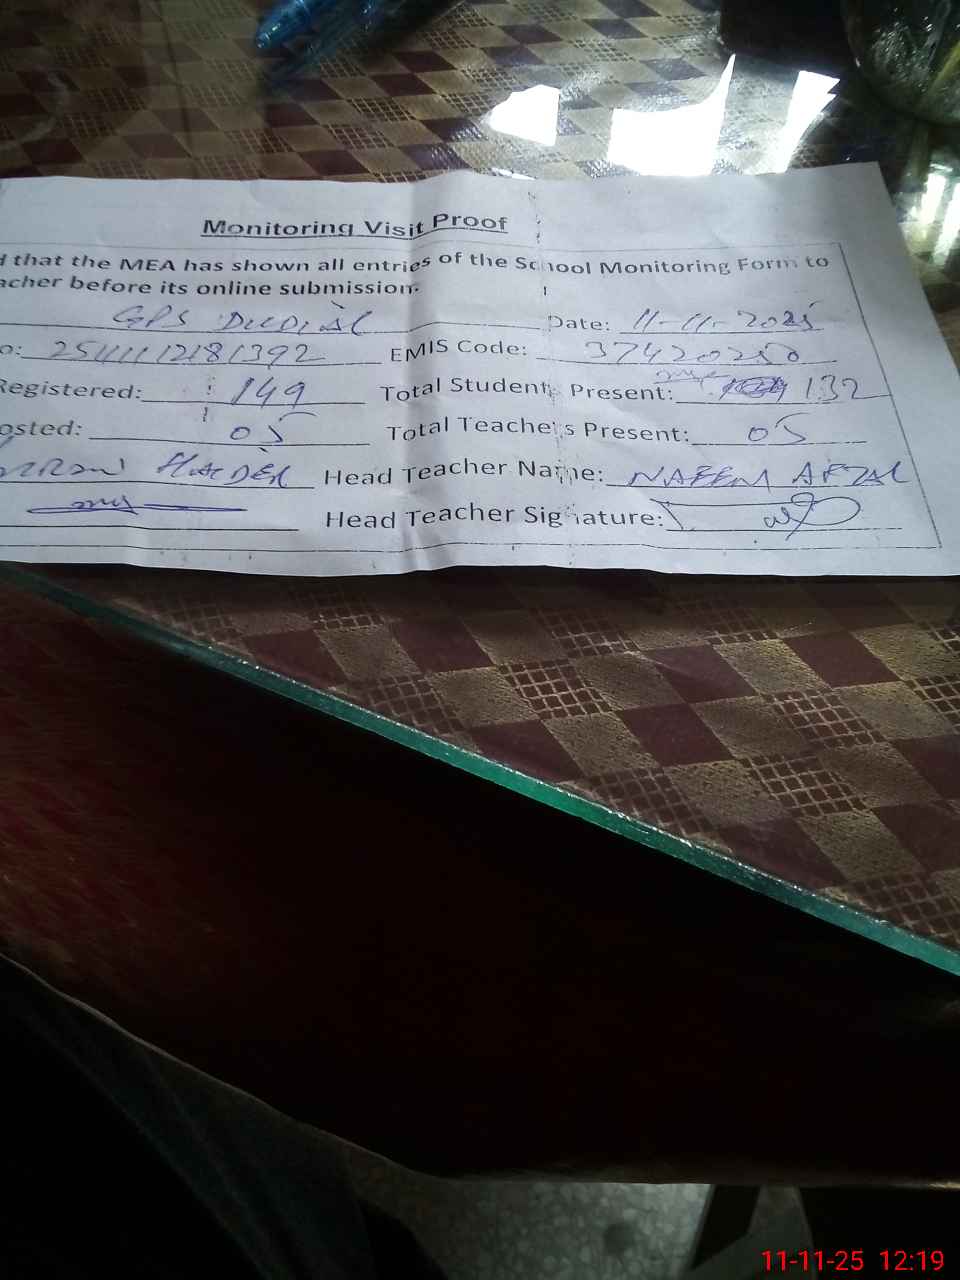 Monitoring Visit Proof
d that the MEA has shown all entries of the School Monitoring Form to
acher before its online submission.
GPS DUDIAL Date: 11-11-2025
o: 2511112181392 EMIS Code: 37420250
Registered: 149 Total Students Present: 132
osted: 05 Total Teachers Present: 05
HAIDER Head Teacher Name: NAEEM AFZAL
Head Teacher Signature:
11-11-25 12:19